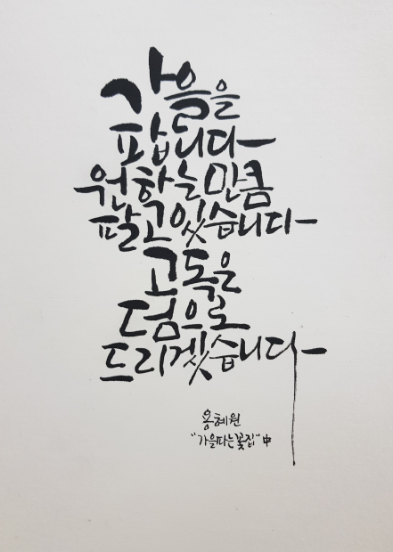 가을을
팝니다
원하는 만큼
팔고 있습니다
고독은
덤으로
드리겠습니다
용혜원
"가을파는꽃집" 中